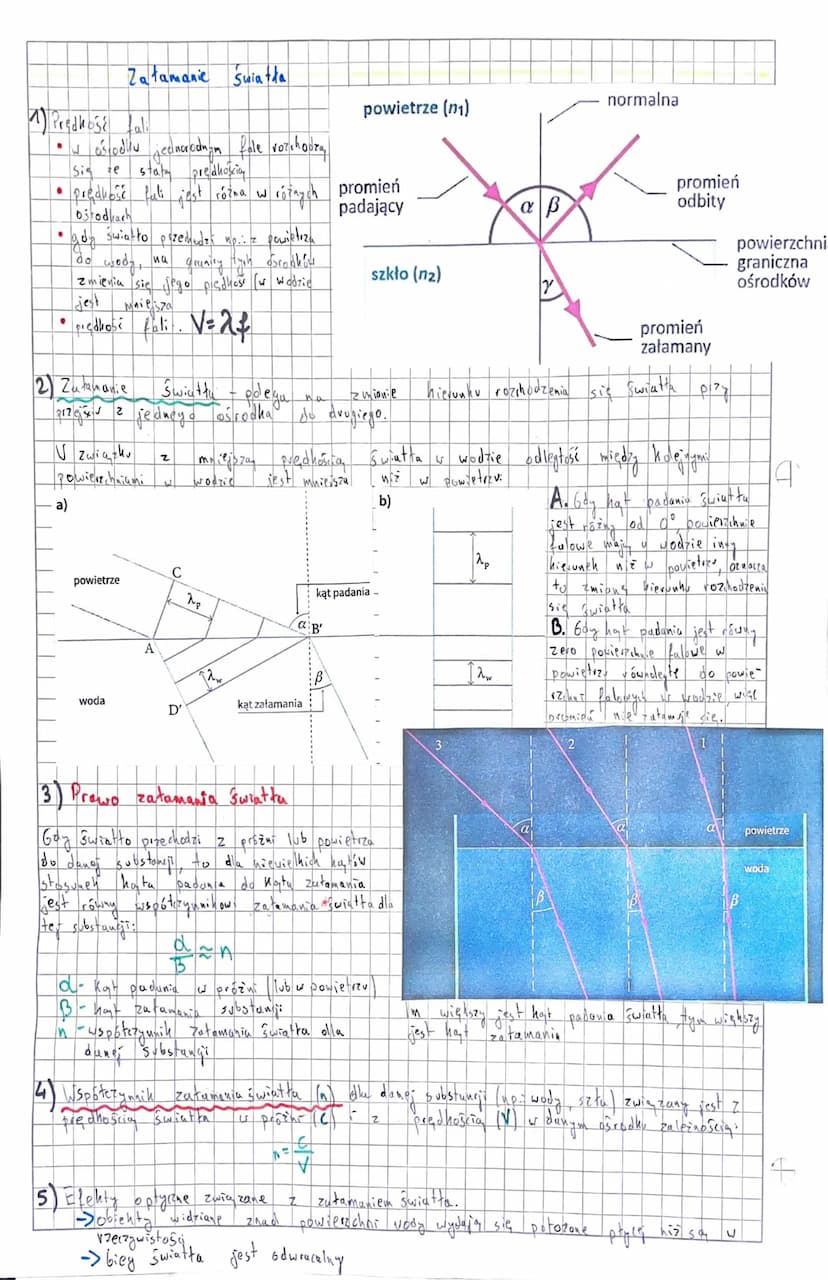 Załamanie światła
1) Prędkość fali
• w ośrodku jednorodnym fale rozchodzą
się ze stałą prędkością
• prędkość fali jest różna w różnych
ośrodkach
• gdy światło przechodzi np.: z powietrza
do wody, na granicy tych ośrodków
zmienia się jego prędkość (w wodzie
jest mniejsza
• prędkość fali: V=λf
powietrze (n1)
normalna
promień
padający
α β
promień
odbity
powierzchni
graniczna
ośrodków
szkło (n2)
γ
promień
załamany
2) Załamanie światła - polega na zmianie kierunku rozchodzenia się światła przy
przejściu z jednego ośrodka do drugiego.
W związku z mniejszą prędkością światła w wodzie odległość między kolejnymi
powierzchniami w wodzie jest mniejsza niż w powietrzu:
a)
powietrze
C
λp
kąt padania
α B'
A
λw
β
woda
D'
kąt załamania
b)
λp
λw
A. Gdy kąt padania światła
jest różny od 0° powierzchnie
falowe mają w wodzie inny
kierunek niż w powietrzu, oznacza
to zmianę kierunku rozchodzenia
się światła
B. Gdy kąt padania jest równy
zero powierzchnie falowe w
powietrzu równoległe do powie-
rzchni falowych w wodzie, więc
promień nie załamuje się.
3 2 1
α α α
powietrze
woda
β β β
Im większy jest kąt padania światła, tym większy
jest kąt załamania
3) Prawo załamania światła
Gdy światło przechodzi z próżni lub powietrza
do danej substancji, to dla niewielkich kątów
stosunek kąta padania do kąta załamania
jest równy współczynnikowi załamania światła dla
tej substancji:
α/β ≈ n
α - kąt padania w próżni (lub w powietrzu)
β - kąt załamania substancji
n - współczynnik załamania światła dla
danej substancji
4) Współczynnik załamania światła (n) dla danej substancji (np.: wody, szkła) związany jest z
prędkością światła w próżni (c) i z prędkością (V) w danym ośrodku zależnością:
n = c/V
5) Efekty optyczne związane z załamaniem światła.
→ obiekty widziane znad powierzchni wody wydają się położone płycej niż są w
rzeczywistości
→ bieg światła jest odwracalny